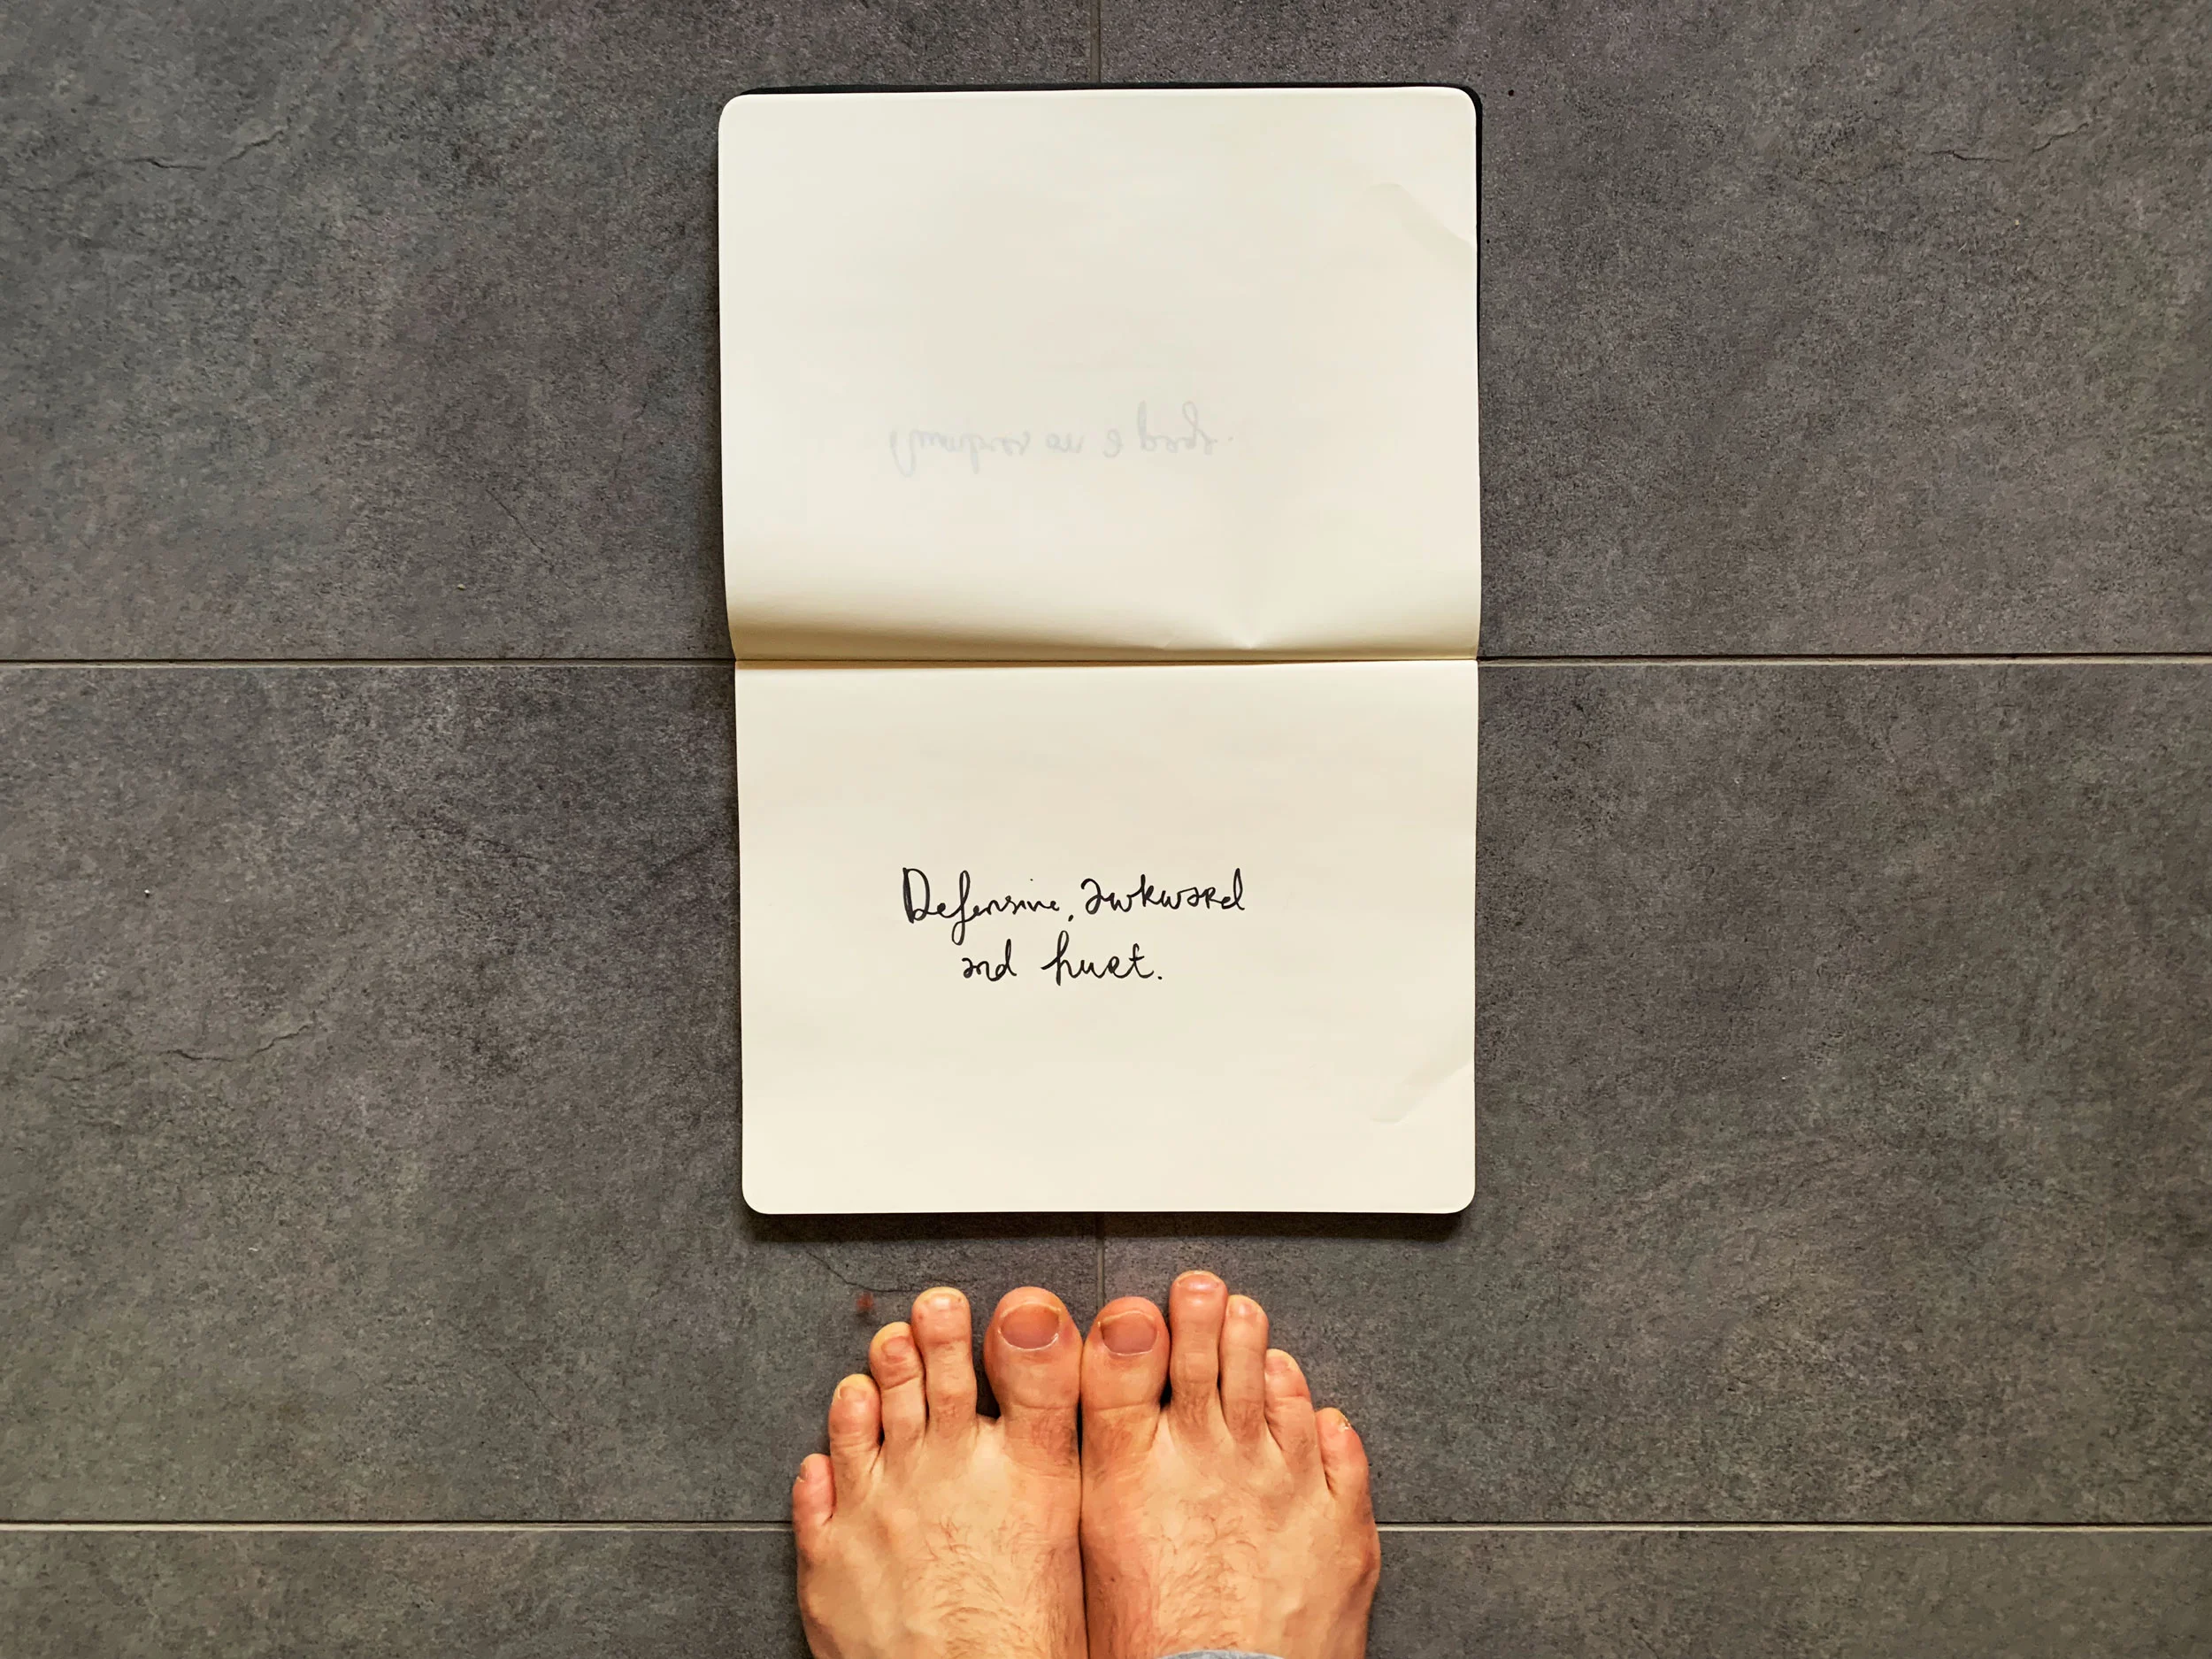 Defensive, awkward
and hurt.